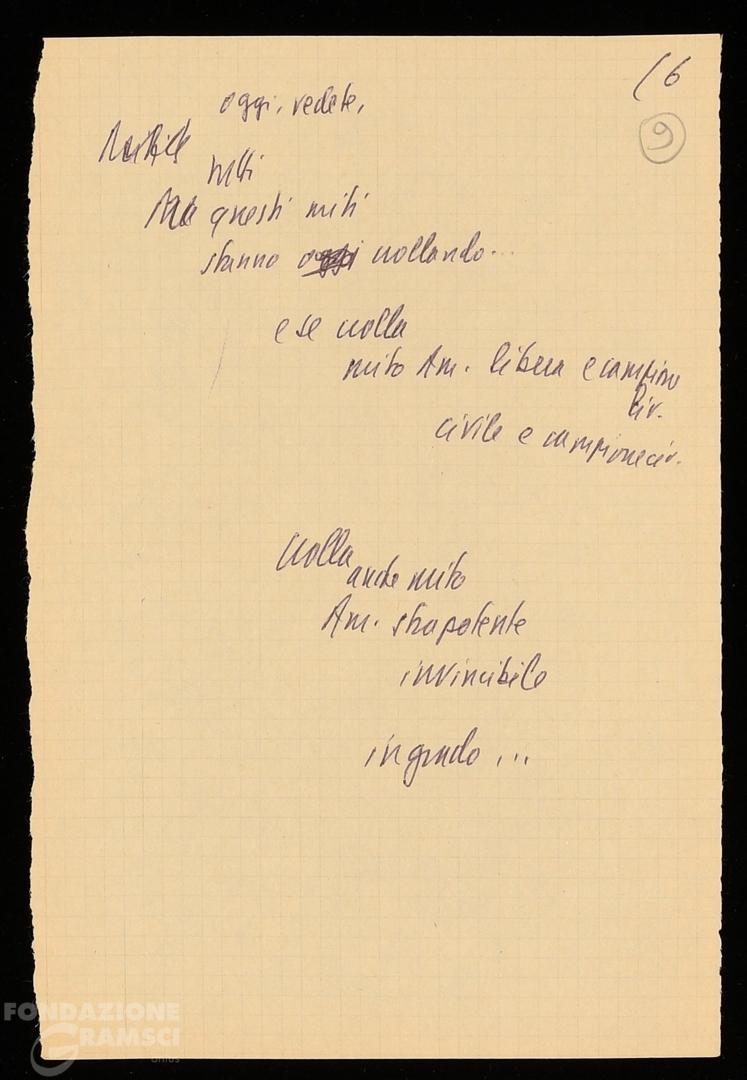 16
9
oggi, vedete,
tutti
Ma questi miti
stanno oggi crollando...
e se crolla
mito Am. libera e campione
civ.
civile e campione civ.
Crolla
anche mito
Am. strapotente
invincibile
in grado...
FONDAZIONE
GRAMSCI
onlus